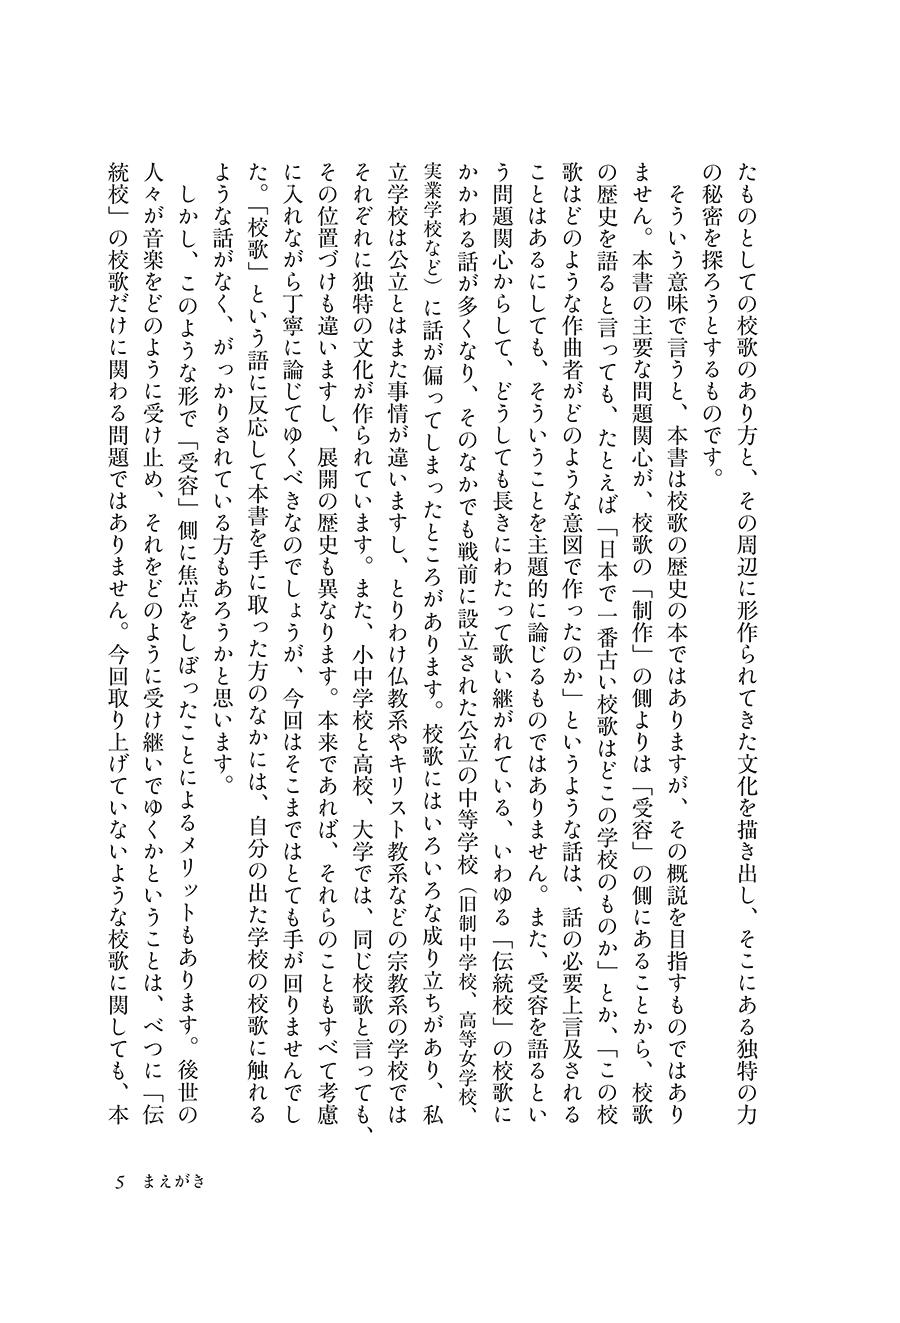 たものとしての校歌のあり方と、その周辺に形作られてきた文化を描き出し、そこにある独特の力
の秘密を探ろうとするものです。
そういう意味で言うと、本書は校歌の歴史の本ではありますが、その概説を目指すものではあり
ません。本書の主要な問題関心が、校歌の「制作」の側よりは「受容」の側にあることから、校歌
の歴史を語ると言っても、たとえば「日本で一番古い校歌はどこの学校のものか」とか、「この校
歌はどのような作曲者がどのような意図で作ったのか」というような話は、話の必要上言及される
ことはあるにしても、そういうことを主題的に論じるものではありません。また、受容を語るとい
う問題関心からして、どうしても長きにわたって歌い継がれている、いわゆる「伝統校」の校歌に
かかわる話が多くなり、そのなかでも戦前に設立された公立の中等学校（旧制中学校、高等女学校、
実業学校など）に話が偏ってしまったところがあります。校歌にはいろいろな成り立ちがあり、私
立学校は公立とはまた事情が違いますし、とりわけ仏教系やキリスト教系などの宗教系の学校では
それぞれに独特の文化が作られています。また、小中学校と高校、大学では、同じ校歌と言っても、
その位置づけも違いますし、展開の歴史も異なります。本来であれば、それらのこともすべて考慮
に入れながら丁寧に論じてゆくべきなのでしょうが、今回はそこまではとても手が回りませんでし
た。「校歌」という語に反応して本書を手に取った方のなかには、自分の出た学校の校歌に触れる
ような話がなく、がっかりされている方もあろうかと思います。
しかし、このような形で「受容」側に焦点をしぼったことによるメリットもあります。後世の
人々が音楽をどのように受け止め、それをどのように受け継いでゆくかということは、べつに「伝
統校」の校歌だけに関わる問題ではありません。今回取り上げていないような校歌に関しても、本
5 まえがき